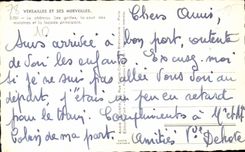 VERSAILLES ET SES MERVEILLES.
Le château. Les grilles, la cour des
ministres et la façade principale.
Chers Amis,
Suis arrivée à bon port, contente
de voir les enfants. Excusez moi
si je ne suis pas allée vous voir au
départ, j'étais un peu en retard
pour le train. Compliments à Mr et Me
de ma part.
Amitiés